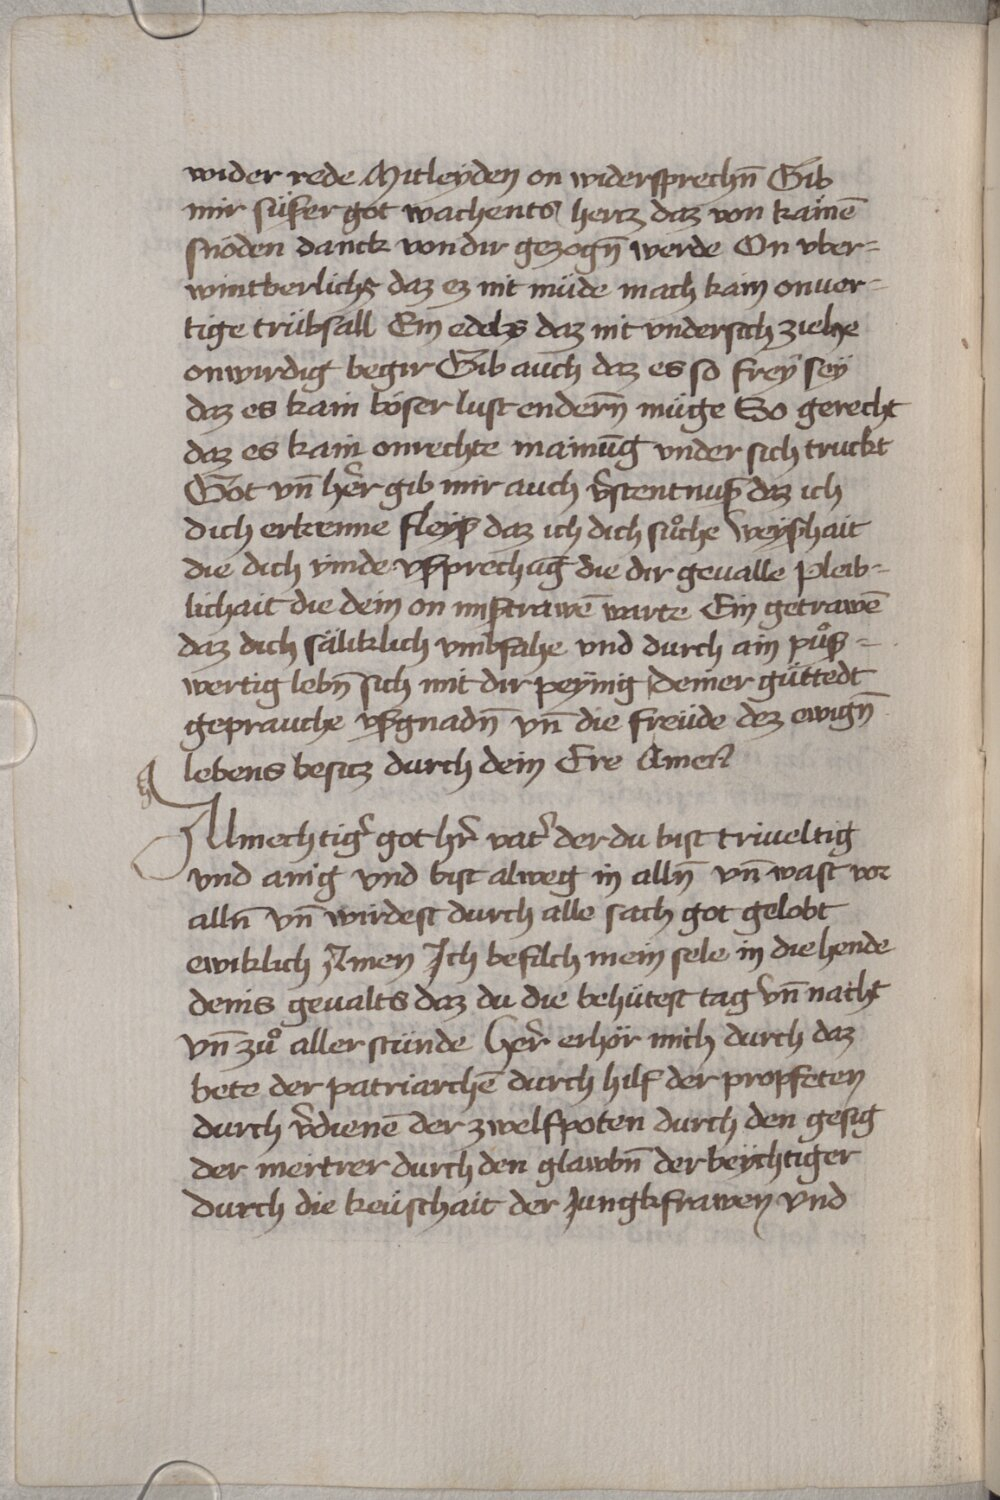 wider rede Mitleyden on widersprechn̄ Gib
mir süßer got wachents hertz daz von kainē
snöden danck von dir gezogn̄ werde On vber-
wintberlichs daz ez nit müde mach kain onuer-
tige trübsall Ein edels daz nit vndersich ziehe
onwirdig begir Gib auch daz es so freÿ seÿ
daz es kain böser lust endern̄ müge So gerecht
daz es kain onrechte mainūg vnder sich truckt
Got vn̄ her̄ gib mir auch v̄stentnuß daz ich
dich erkenne fleyß daz ich dich sůche weyßhait
die dich vinde vßprechāg die dir geualle Pleib-
lichait die dein on mißtrawē warte Ein getrawē
daz dich säliklich vmbfahe vnd durch ain půß-
wertig lebn̄ sich mit dir peynig deiner güttedt
geprauche vßgnadn̄ vn̄ die freüde dez ewign̄
lebens besitz durch dein Ere Amen
Almechtigr̄ got hr̄ vatr̄ der du bist triueltig
vnd ainig vnd bist alweg in alln̄ vn̄ wast vor
alln̄ vn̄ wirdest durch alle sach got gelobt
ewiklich Amen Ich befilch mein sele in die hende
deins geualts daz du die behütest tag vn̄ nacht
vn̄ zů aller stünde her̄ erhör mich durch daz
bete der patriarchē durch hilf der propfeten
durch v̄dienē der zwelfpoten durch den gesig
der mertrer durch den glawbn̄ der beychtiger
durch die keüschait der Jungkfrawen vnd